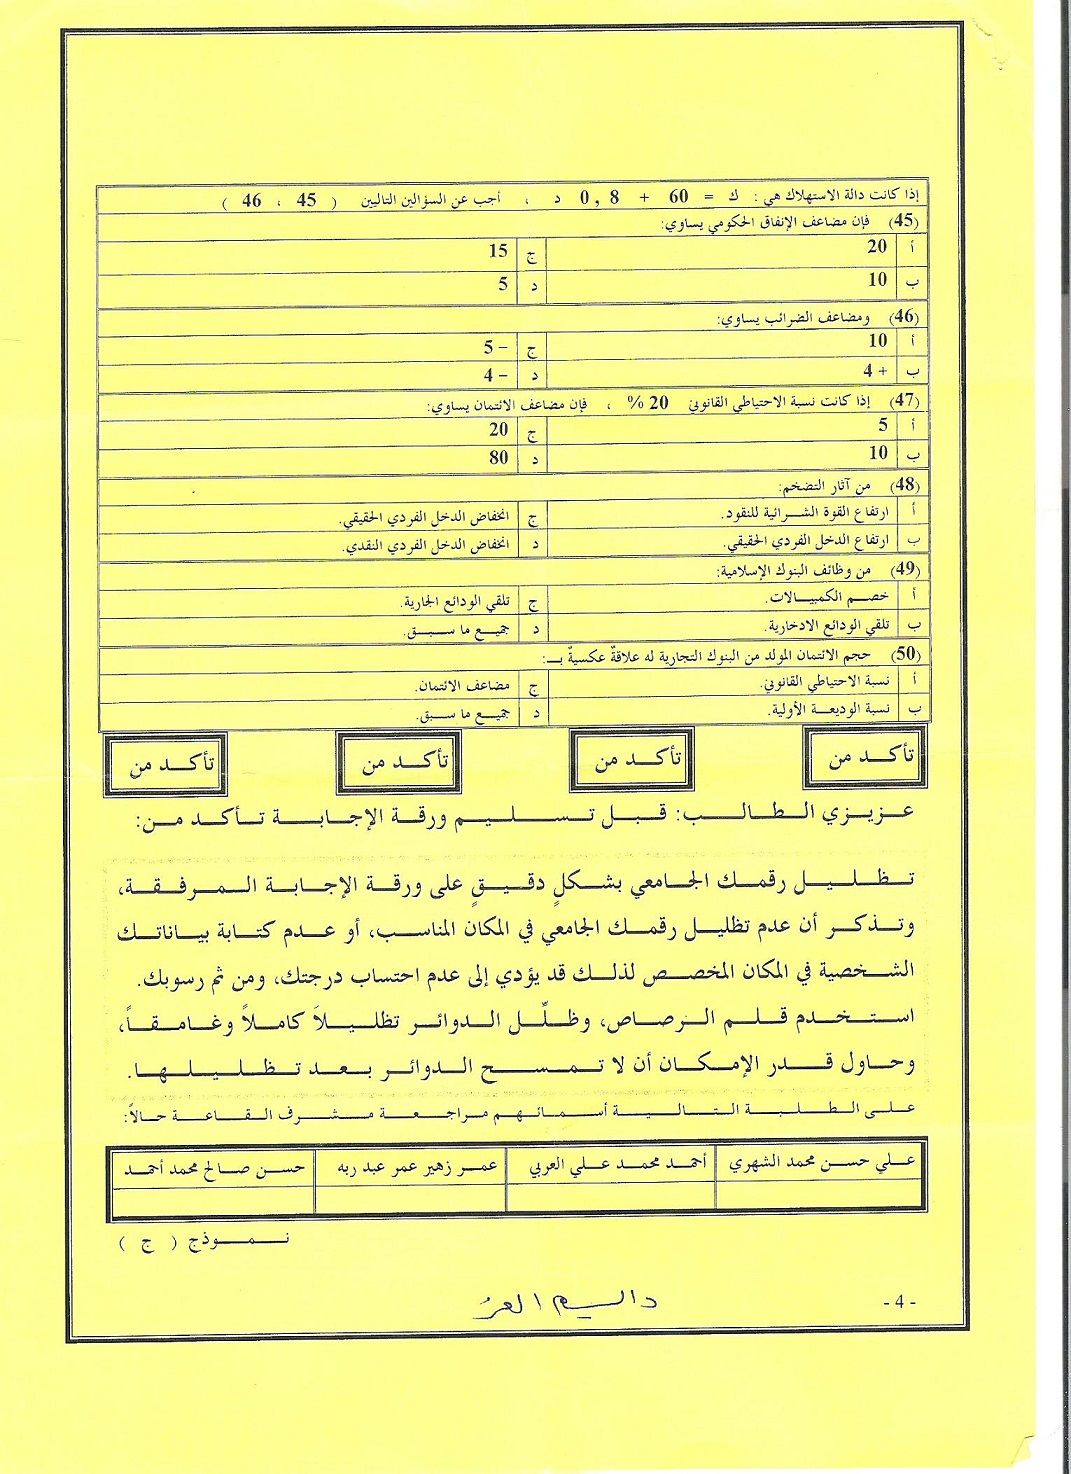 إذا كانت دالة الاستهلاك هي: ك = 60 + 0,8 د ، أجب عن السؤالين التاليين ( 45 ، 46 )
(45) فإن مضاعف الإنفاق الحكومي يساوي:
أ 20 ج 15
ب 10 د 5
(46) ومضاعف الضرائب يساوي:
أ 10 ج – 5
ب + 4 د – 4
(47) إذا كانت نسبة الاحتياطي القانوني 20 % ، فإن مضاعف الائتمان يساوي:
أ 5 ج 20
ب 10 د 80
(48) من آثار التضخم:
أ ارتفاع القوة الشرائية للنقود. ج انخفاض الدخل الفردي الحقيقي.
ب ارتفاع الدخل الفردي الحقيقي. د انخفاض الدخل الفردي النقدي.
(49) من وظائف البنوك الإسلامية:
أ خصم الكمبيالات. ج تلقي الودائع الجارية.
ب تلقي الودائع الادخارية. د جميع ما سبق.
(50) حجم الائتمان المولد من البنوك التجارية له علاقةٌ عكسيةٌ بـ:
أ نسبة الاحتياطي القانوني. ج مضاعف الائتمان.
ب نسبة الوديعة الأولية. د جميع ما سبق.
تأكد من تأكد من تأكد من تأكد من
عزيزي الطالب: قبل تسليم ورقة الإجابة تأكد من:
تظليل رقمك الجامعي بشكلٍ دقيقٍ على ورقة الإجابة المرفقة،
وتذكر أن عدم تظليل رقمك الجامعي في المكان المناسب، أو عدم كتابة بياناتك
الشخصية في المكان المخصص لذلك قد يؤدي إلى عدم احتساب درجتك، ومن ثم رسوبك.
استخدم قلم الرصاص، وظلِّل الدوائر تظليلاً كاملاً وغامقاً،
وحاول قدر الإمكان أن لا تمسح الدوائر بعد تظليلها.
على الطلبة التالية أسمائهم مراجعة مشرف القاعة حالاً:
علي حسن محمد الشهري أحمد محمد علي العربي عمر زهير عمر عبد ربه حسن صالح محمد أحمد
نموذج ( ج )
- 4 -